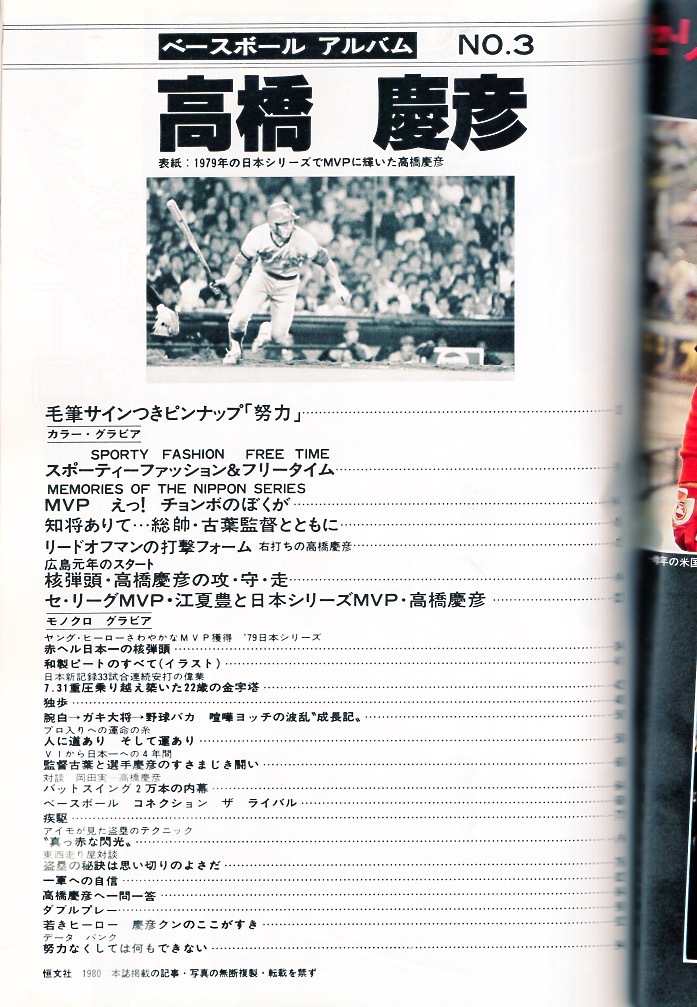 ベースボール アルバム NO.3
高橋 慶彦
表紙：1979年の日本シリーズでMVPに輝いた高橋慶彦
毛筆サインつきピンナップ「努力」
カラー・グラビア
SPORTY FASHION FREE TIME
スポーティーファッション&フリータイム
MEMORIES OF THE NIPPON SERIES
MVP えっ! チョンボのぼくが
知将ありて…総帥・古葉監督とともに
リードオフマンの打撃フォーム 右打ちの高橋慶彦
広島元年のスタート
核弾頭・高橋慶彦の攻・守・走
セ・リーグMVP・江夏豊と日本シリーズMVP・高橋慶彦
モノクロ グラビア
ヤング・ヒーローさわやかなMVP獲得 '79日本シリーズ
赤ヘル日本一の核弾頭
和製ピートのすべて(イラスト)
日本新記録33試合連続安打の偉業
7.31重圧乗り越え築いた22歳の金字塔
独歩
腕白→ガキ大将→野球バカ 喧嘩ヨッチの波乱〝成長記〟
プロ入りへの運命の糸
人に道あり そして運あり
V1から日本一への4年間
監督古葉と選手慶彦のすさまじき闘い
対談 岡田実―高橋慶彦
バットスイング2万本の内幕
ベースボール コネクション ザ ライバル
疾駆
アイモが見た盗塁のテクニック
〝真っ赤な閃光〟
東西走り屋対談
盗塁の秘訣は思い切りのよさだ
一軍への自信
高橋慶彦へ一問一答
ダブルプレー
若きヒーロー 慶彦クンのここがすき
データ バンク
努力なくしては何もできない
恒文社 1980 本誌掲載の記事・写真の無断複製・転載を禁ず